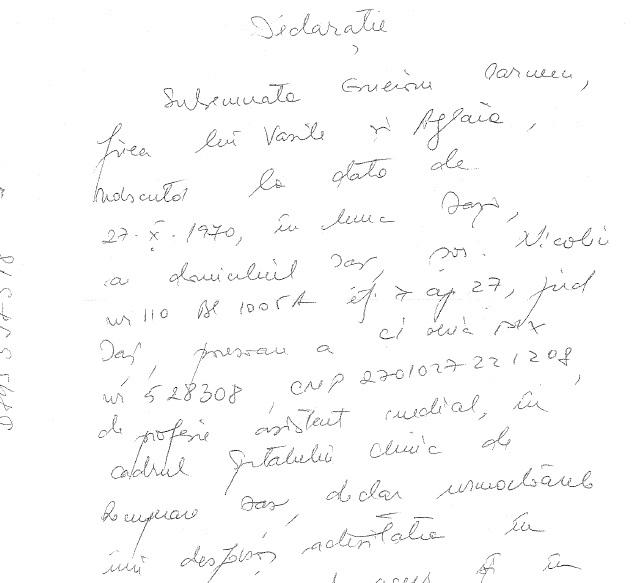 Declarație
Subsemnata Carmen,
fiica lui Vasile și Aglaia,
născută la data de
27.X.1970, în Iași,
a domiciliul Iași, șos. Nicolin
nr 110 Bl 1005A et. 7 ap 27, jud
Iași, a CI seria MX
nr 528308, CNP 2701027221208,
de profesie asistent medical, în
cadrul Spitalului Clinic de
Recuperare Iași, declar următoarele
îmi activitatea în
și în